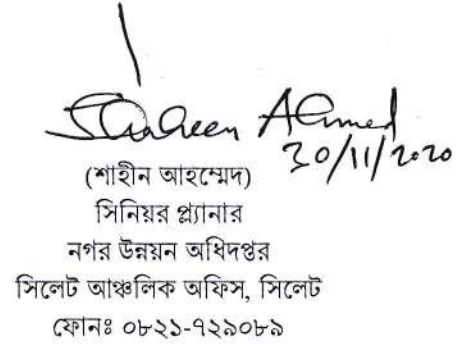 Shaheen Ahmed
30/11/2020
(শাহীন আহম্মেদ)
সিনিয়র প্ল্যানার
নগর উন্নয়ন অধিদপ্তর
সিলেট আঞ্চলিক অফিস, সিলেট
ফোনঃ ০৮২১-৭২৯০৮৯